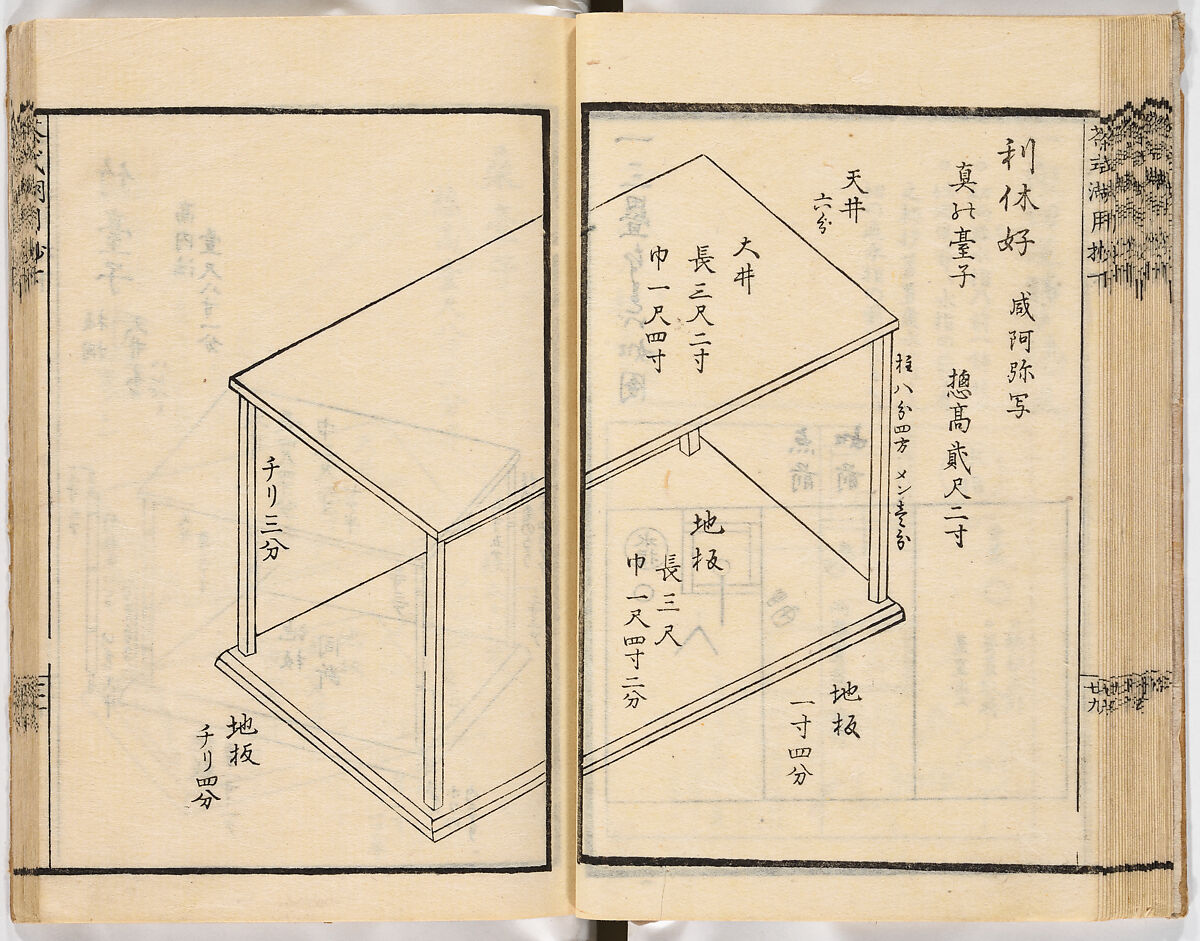 利休好 咸阿弥写
真ノ臺子 摠髙貮尺二寸
柱八分四方 メン壱分
天井
六分
大井
長三尺二寸
巾一尺四寸
地板
長三尺
巾一尺四寸二分
地板
一寸四分
廿九
チリ三分
地板
チリ四分